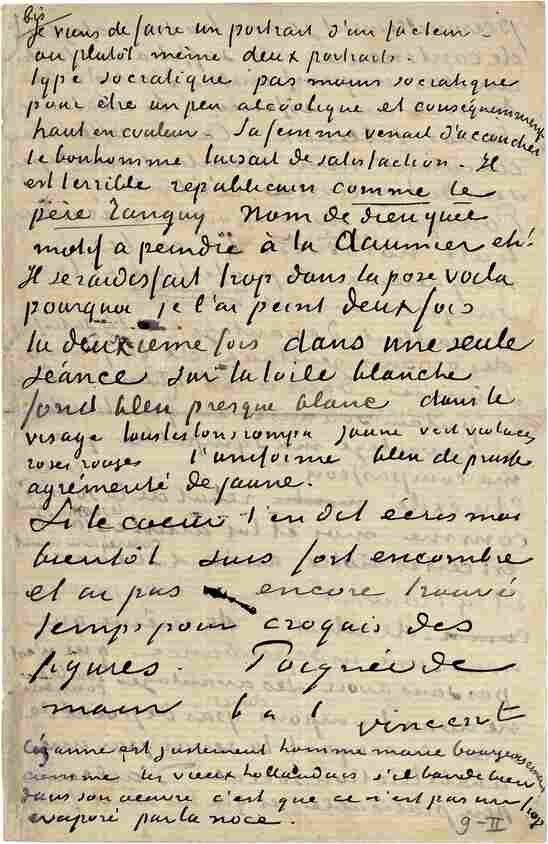 bis
Je viens de faire un portrait d'un facteur.
ou plutôt même deux portraits.
type socratique pas moins socratique
pour être un peu alcoolique et conséquemment
haut en couleur. Sa femme venait d'accoucher
le bonhomme luisait de satisfaction. Il
est terrible republicain comme le
père Tanguy Nom de dieu quel
motif a peindre à la Daumier eh!
Il se raidissait trop dans la pose voila
pourquoi je l'ai peint deux fois
la deuxieme fois dans une seule
séance sur la toile blanche
fond bleu presque blanc dans le
visage tous les tons rompu jaune vert violacés
roses rouges l'uniforme bleu de prusse
agrémenté de jaune.
Si le coeur t'en dit écris moi
bientôt suis fort encombré
et ai pas encore trouvé
temps pour croquis des
figures. Poignée de
main t. à t. Vincent
Cézanne est justement homme marié bourgeoisement
comme les vieux hollandais s'il bande bien
dans son oeuvre c'est que ce n'est pas un trop
évaporé par la noce.
9-II